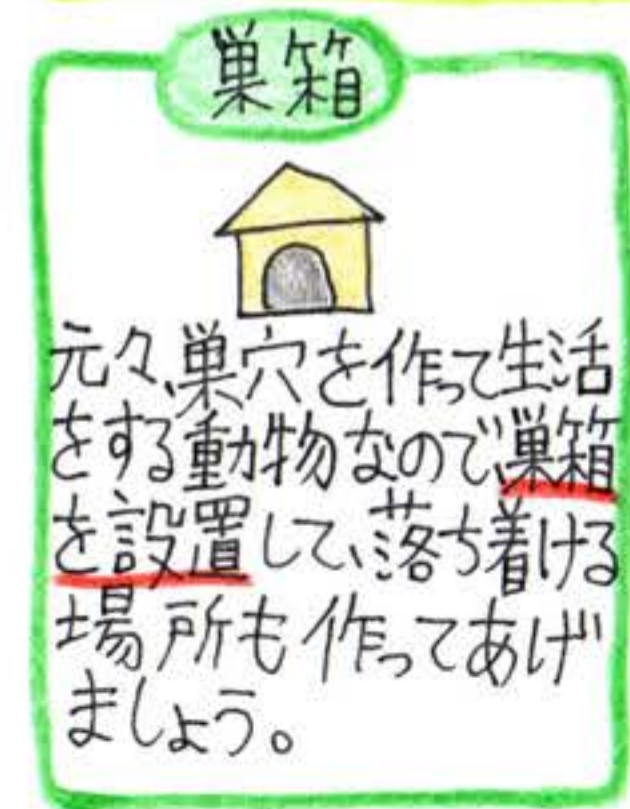 巣箱
元々、巣穴を作って生活
をする動物なので、巣箱
を設置して、落ち着ける
場所も作ってあげ
ましょう。